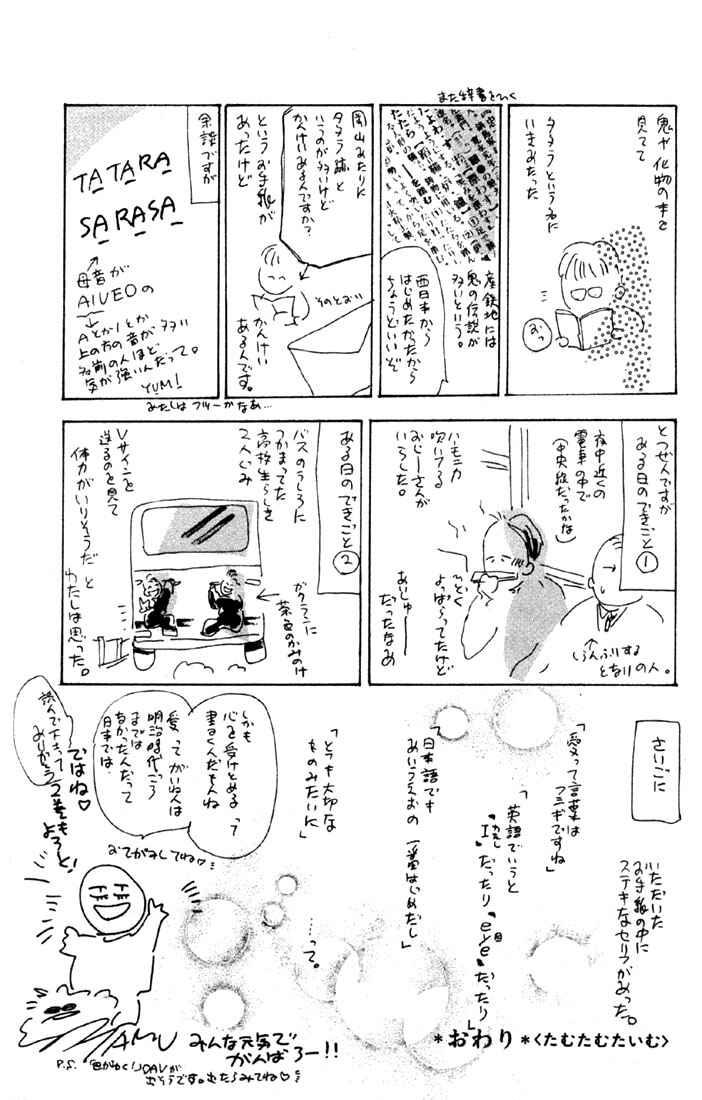 鬼や化物の本を
見てて
タタラという名に
いきあたった
おっ
また辞書をひく
産鉄地には
鬼の伝説が
多いという。
西日本から
はじめたかったから
ちょうどいいぞ
岡山あたりに
タタラ誌と
いうのが多いけど
かんけいあるんですか？
というお手紙が
あったけど
そのとおり
かんけい
あるんです。
余談ですが
TATARA
SARASA
母音が
AIUEOの
AとかIとか
上の方の音が多い
名前の人ほど
気が強いんだって。
YUMI
あたしはフツーかなあ…
とつぜんですが
ある日のできごと①
夜中近くの
電車の中で
（中央線だったかな）
ハモニカ
吹いてる
おじーさんが
いらした。
よっぱらってたけど
あいじゅー
だったなあ
しらんふりする
となりの人。
ある日のできごと②
バスのうしろに
つかまってた
高校生らしき
2人ぐみ
ガクランに
茶色のかみのけ
Vサインを
送るのを見て
体力がいりそうだ と
わたしは思った。
さいごに
いただいた
お手紙の中に
ステキなセリフがあった。
「愛って言葉は
フシギですね」
「英語でいうと
"I"だったり"eye"だったり」
私
目
「日本語でも
あいうえおの 一番はじめだし」
「とても大切な
ものみたいに」
……って。
しかも
心を受けとめる って
書くんだもんね
愛 ってがいねんは
明治時代ごろ
までは
なかったんだって
日本では。
おてがみしてね♡
ではね♡
2巻もよろしく！
読んで下さって
ありがとう
TAMU
みんな元気で
がんばろー!!
＊おわり＊〈たむたむたいむ〉